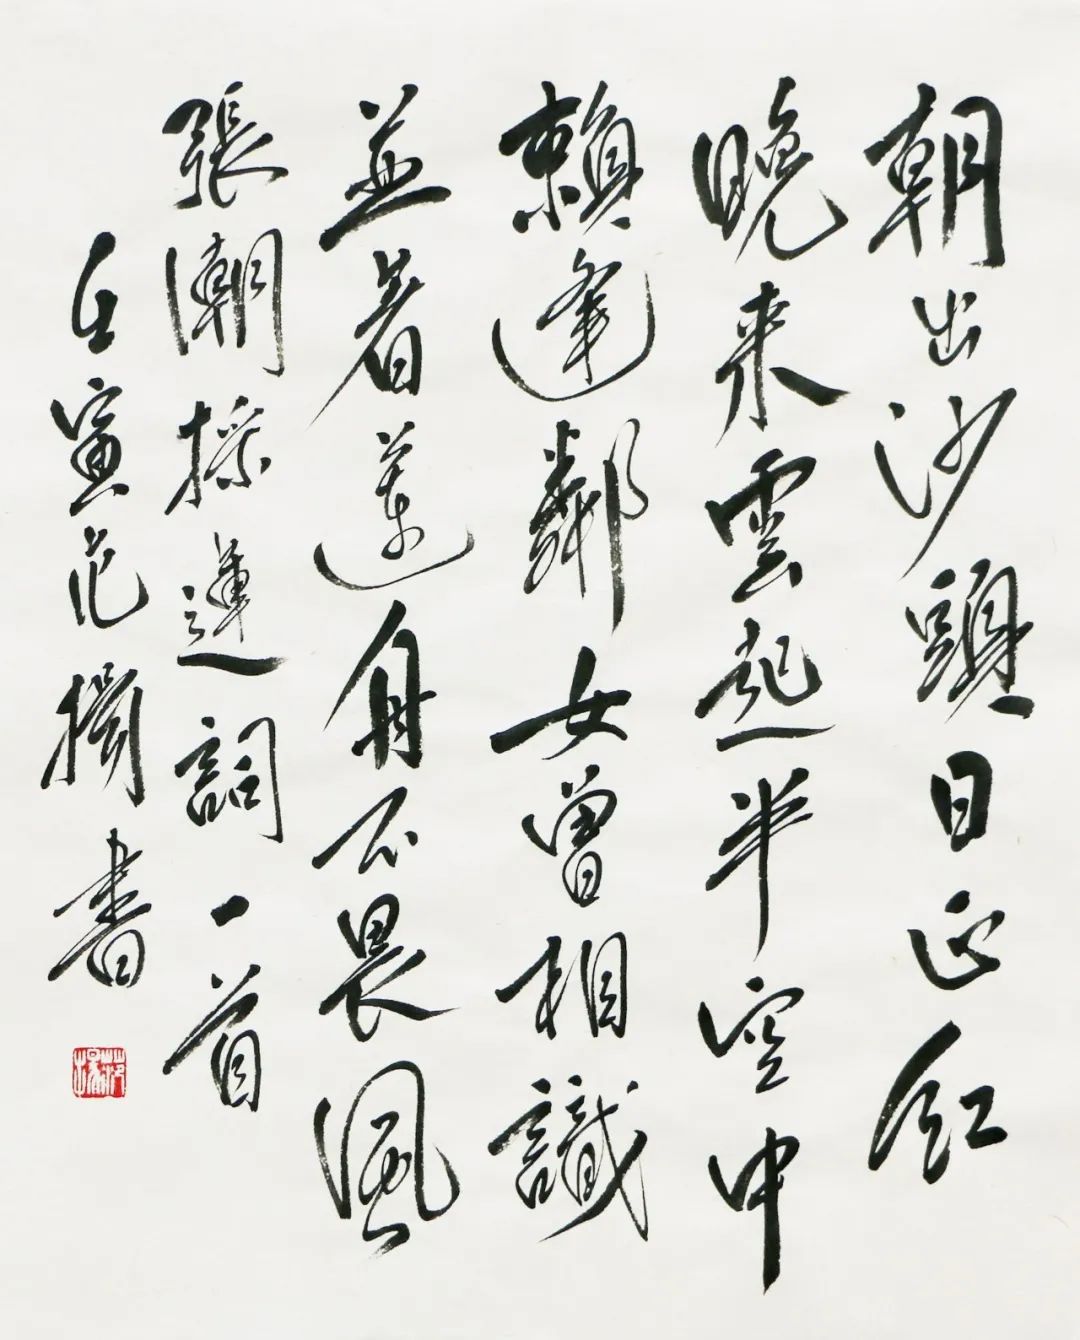 朝出沙頭日正紅
晚來雲起半空中
賴逢鄰女曾相識
並著蓮舟不畏風
張潮採蓮詞一首
壬寅范書